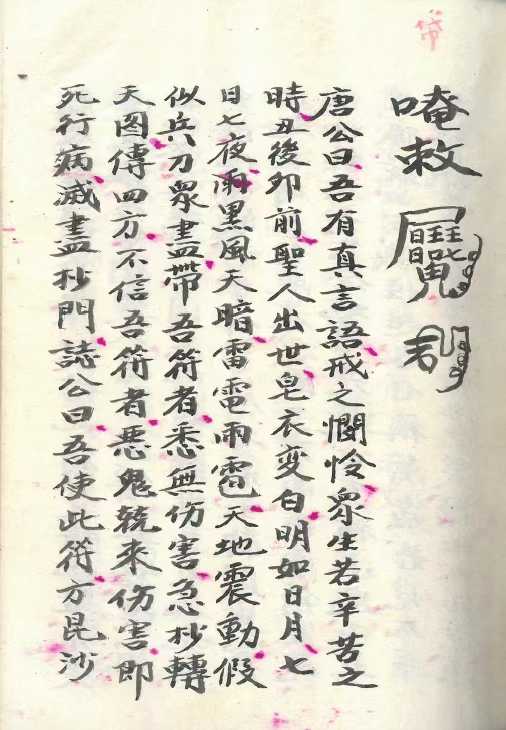 唵敕
唐公曰吾有真言語戒之憫怜衆生若辛苦之
時丑後卯前聖人出世皂衣变白明如日月七
日七夜雨黑風天暗雷電雨雹天地震動假
似兵刀衆盡帶吾符者悉無伤害急抄轉
天图傳四方不信吾符者悪鬼競来伤害即
死行病滅盡抄門誌公曰吾使此符方昆沙